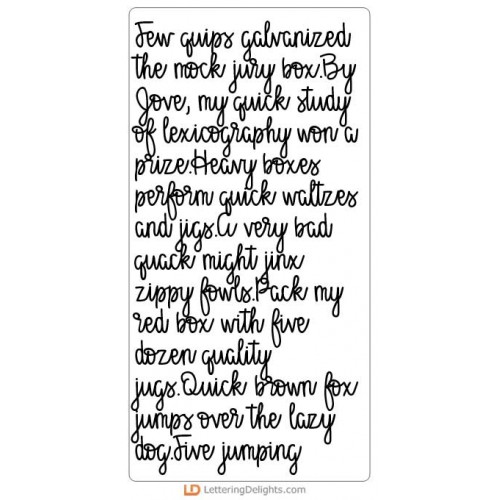 Few quips galvanized
the mock jury box.By
Jove, my quick study
of lexicography won a
prize.Heavy boxes
perform quick waltzes
and jigs.A very bad
quack might jinx
zippy fowls.Pack my
red box with five
dozen quality
jugs.Quick brown fox
jumps over the lazy
dog.Five jumping
LD LetteringDelights.com